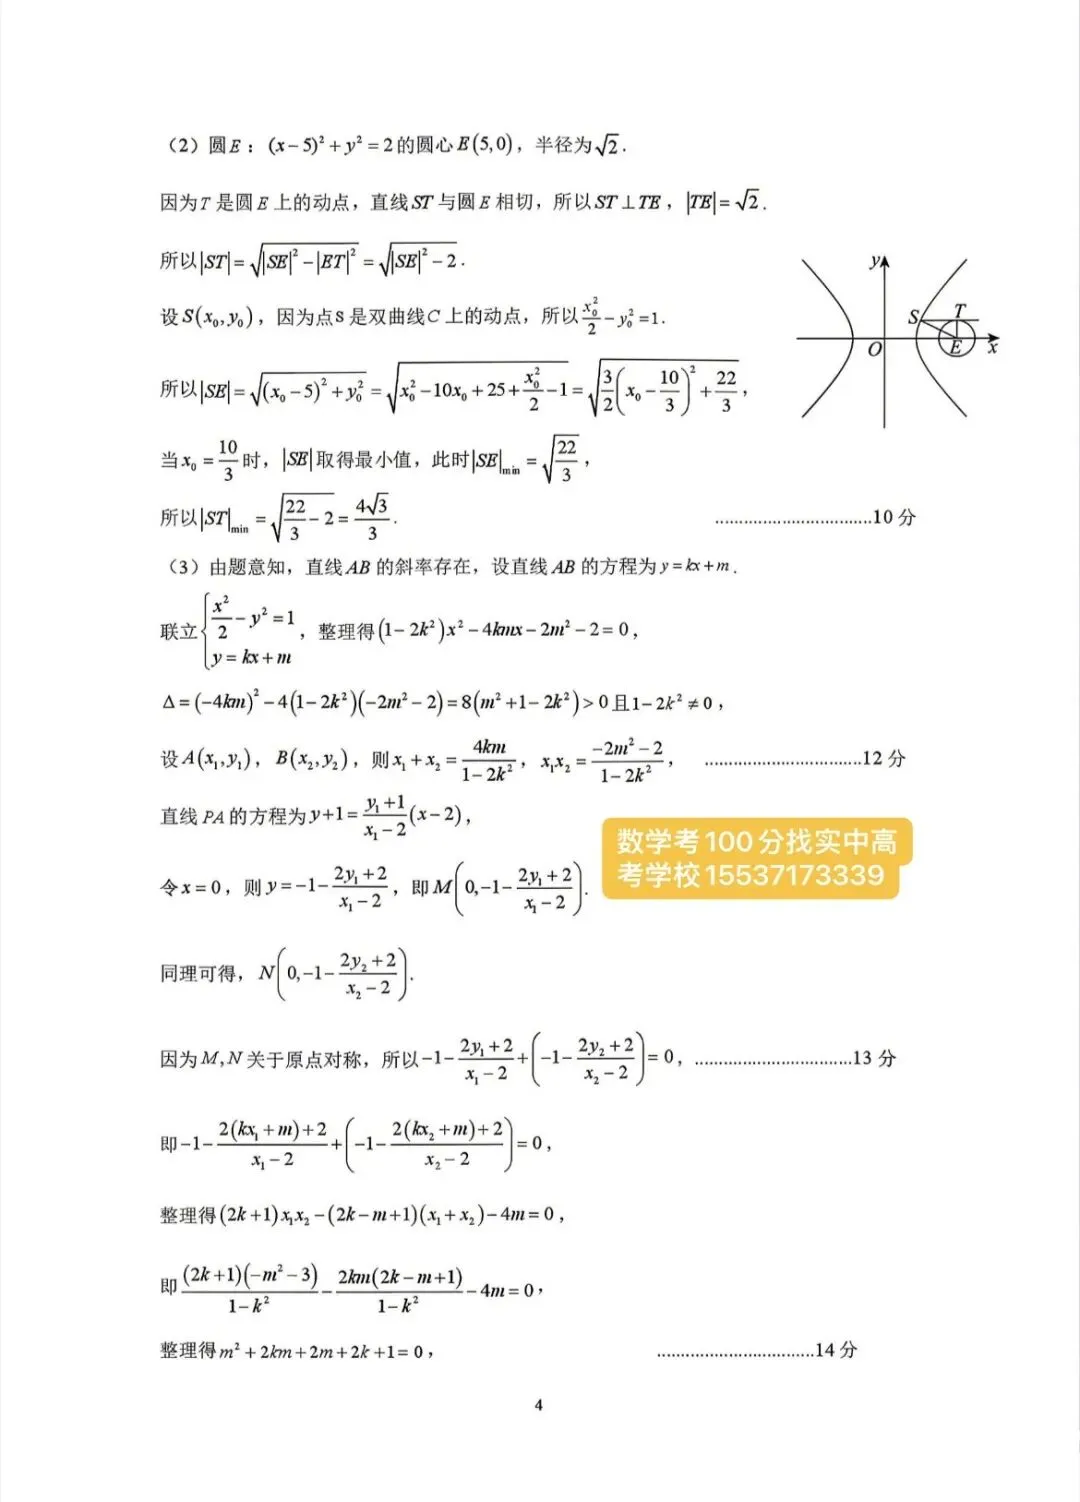 （2）圆E：(x−5)²+y²=2的圆心E(5,0)，半径为√2．
因为T是圆E上的动点，直线ST与圆E相切，所以ST⊥TE，|TE|=√2．
所以|ST|=√(|SE|²−|ET|²)=√(|SE|²−2)．
设S(x₀,y₀)，因为点S是双曲线C上的动点，所以x₀²/2−y₀²=1．
所以|SE|=√((x₀−5)²+y₀²)=√(x₀²−10x₀+25+x₀²/2−1)=√(3/2(x₀−10/3)²+22/3)，
当x₀=10/3时，|SE|取得最小值，此时|SE|min=√(22/3)，
所以|ST|min=√(22/3−2)=4√3/3．.................................10分
y
S
T
O
E
x
（3）由题意知，直线AB的斜率存在，设直线AB的方程为y=kx+m．
联立{x²/2−y²=1, y=kx+m，整理得(1−2k²)x²−4kmx−2m²−2=0，
Δ=(−4km)²−4(1−2k²)(−2m²−2)=8(m²+1−2k²)>0且1−2k²≠0，
设A(x₁,y₁)，B(x₂,y₂)，则x₁+x₂=4km/(1−2k²)，x₁x₂=(−2m²−2)/(1−2k²)，.................................12分
直线PA的方程为y+1=(y₁+1)/(x₁−2)(x−2)，
令x=0，则y=−1−(2y₁+2)/(x₁−2)，即M(0,−1−(2y₁+2)/(x₁−2))．
数学考100分找实中高
考学校15537173339
同理可得，N(0,−1−(2y₂+2)/(x₂−2))．
因为M,N关于原点对称，所以−1−(2y₁+2)/(x₁−2)+(−1−(2y₂+2)/(x₂−2))=0，.................................13分
即−1−(2(kx₁+m)+2)/(x₁−2)+(−1−(2(kx₂+m)+2)/(x₂−2))=0，
整理得(2k+1)x₁x₂−(2k−m+1)(x₁+x₂)−4m=0，
即(2k+1)(−m²−3)/(1−k²)−2km(2k−m+1)/(1−k²)−4m=0，
整理得m²+2km+2m+2k+1=0，.................................14分
4